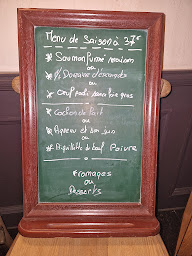 Menu de Saison à 37€
* Saumon fumé maison
ou
* Douzaine d'escargots
ou
* Oeuf poché sauce foie gras
* Cochon de lait
ou
* Agneau et son jus
ou
* Aiguillette de boeuf Poivre
Fromages
ou
Desserts